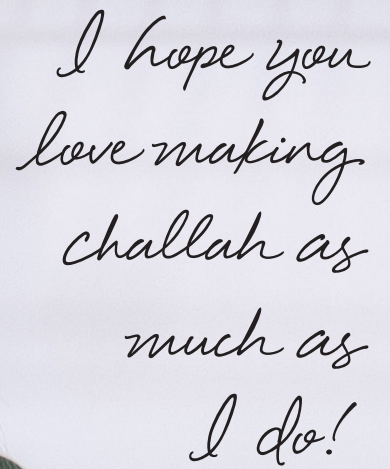 I hope you
love making
challah as
much as
I do!